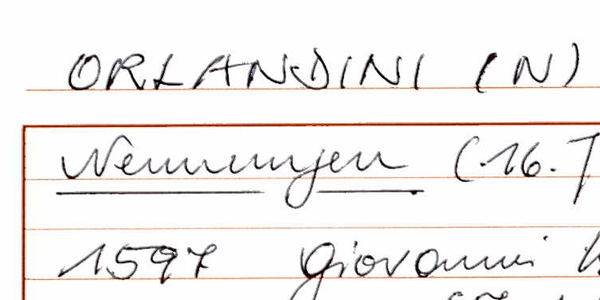 ORLANDINI (N)
Nennungen (16.J
1597 Giovanni